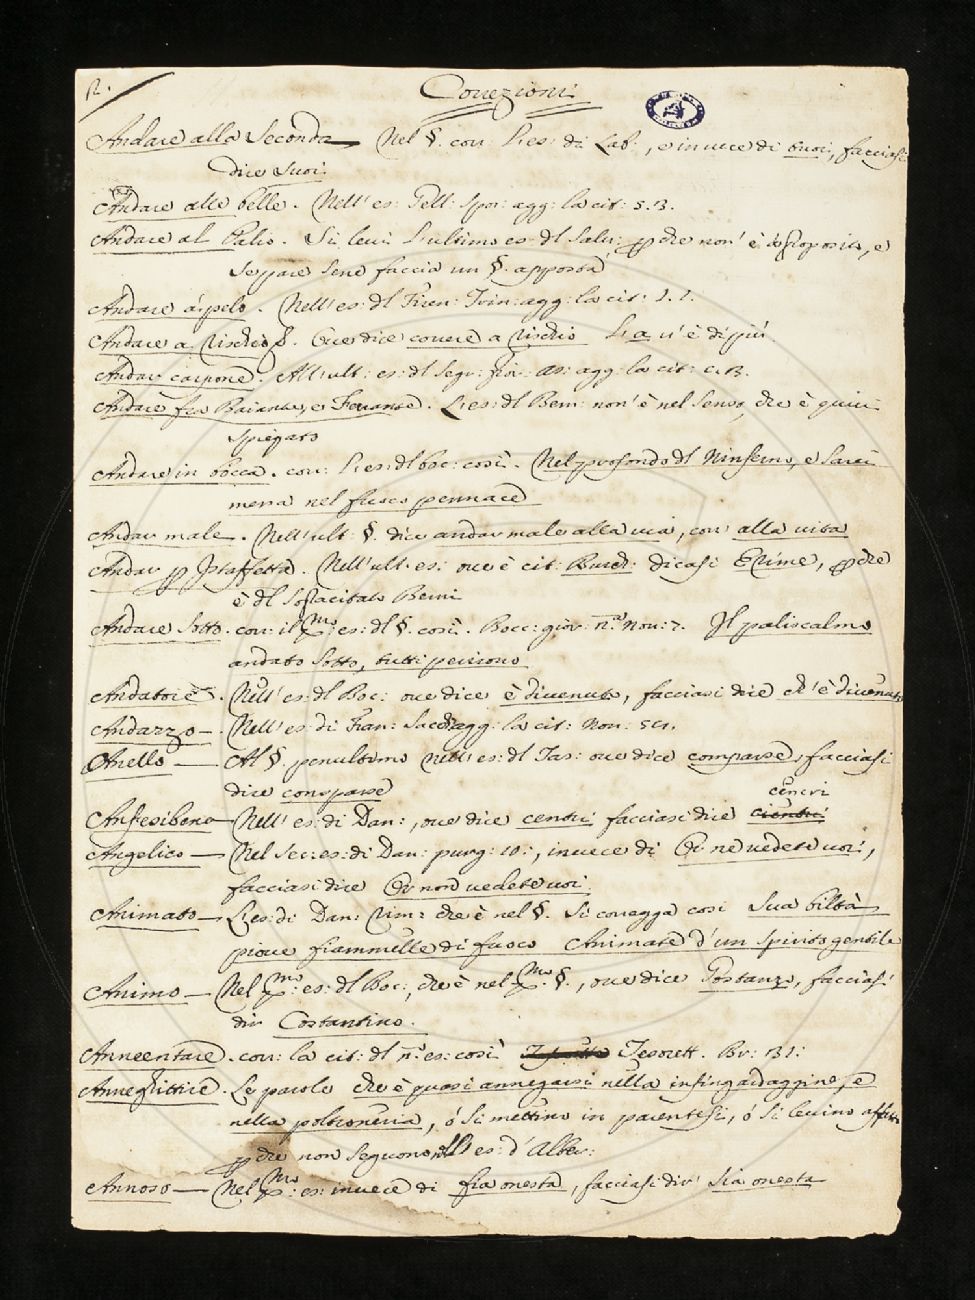 2.
Correzioni
Andare alla Seconda Nel §. corr: l'es: di Lab:, e invece di buoi, facciasi
dire suoi.
Andare alle belle. Nell'es: Gell: Spor: agg: la cit: 5. 3.
Andare al Palio. Si levi l'ultimo es: dl Salv: pche non è a proposito, e
se pare sene faccia un §. apposta
Andare á pelo. Nell'es: dl Firen: Trin: agg: la cit: 1. 2.
Andare a Rischio §. Ove dice correre a Rischio l'a v'è di più.
Andar carpone. All'ult: es: dl Segr: fior: as: agg: la cit: c. 3.
Andare fra Baiante, e Ferrante. L'es: dl Bern: non è nel senso, che è quivi
spiegato
Andare in bocca. corr: l'es: dl boc: così. Nel profondo dl Ninferno, e sarai
messa nel fuoco pennace
Andar male. Nell'ult: §. dice andar male alla via, corr: alla vita
Andar p Istaffetta. Nell'ult: es: ove è cit: Burch: dicasi E Rime, pche
è dl sopracitato Berni
Andare Sotto. corr: il pmo: es: dl §. così. Bocc: gior: Nov: 7. Il paliscalmo
andato sotto, tutti perirono
Nell'es: dl Boc: ove dice è divenuto, facciasi dire ch'è divenuto
Andazzo — Nell'es: di Fran: Sacch: agg: la cit: Nov:
Anello — Al §. penultimo nell'es: dl Tas: ove dice comparse, facciasi
dire consparse
cencri
Anfesibena — Nell'es: di Dan:, ove dice centri facciasi dire
Angelico — Nel sec: es: di Dan: purg: 10:, invece di Or ne vedete voi,
facciasi dire Or non vedete voi
Animato — L'es: di Dan: Rim: che è nel §. Si corregga così Sua biltà
piove fiammelle di fuoco Animate d'un spirito gentile
Animo — Nel pmo: es: dl Boc:, che è nel pmo: §., ove dice Gostanzo, facciasi
dir Costantino.
Anneentare. corr: la cit: dl es: così Tesorett. Br:
Anneghittire. Le parole che è quasi annegarsi nella infingardaggine, e
nella poltroneria, ó si mettino in parentesi, ó si levino affatto
pche non seguono all'es: d'Alber:
Annoso — Nel pmo: es: invece di fia onesta, facciasi dir sia onesta